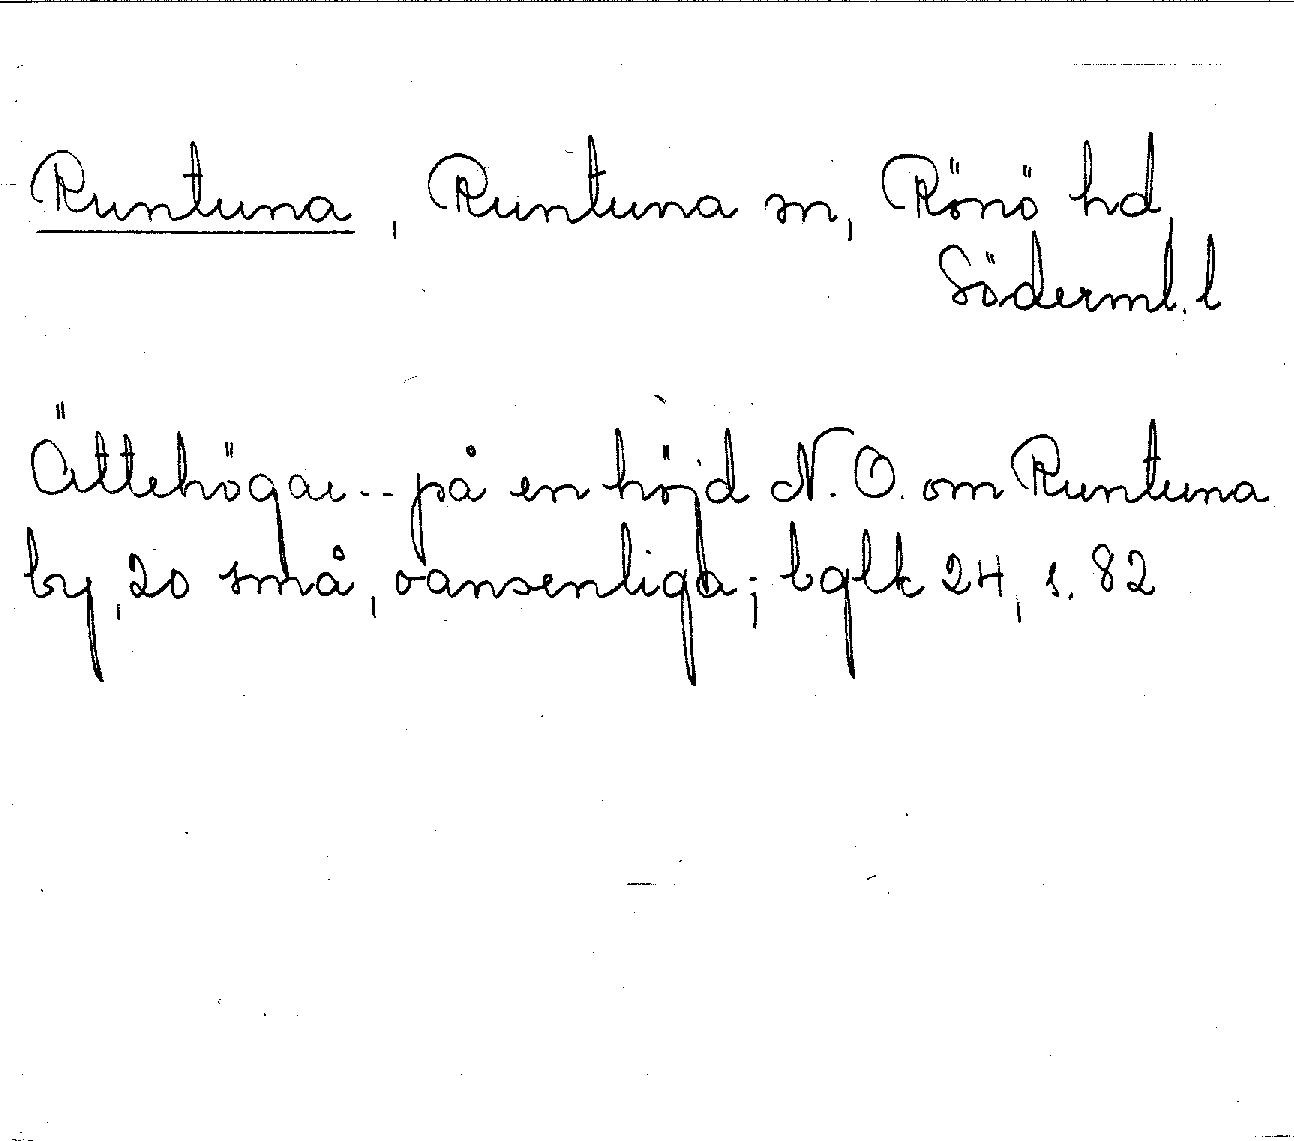 Runtuna, Runtuna sn, Rönö hd,
Söderml. l
Ättehögar -- på en höjd N.O. om Runtuna
by, 20 små, oansenliga; bglk 24, s. 82